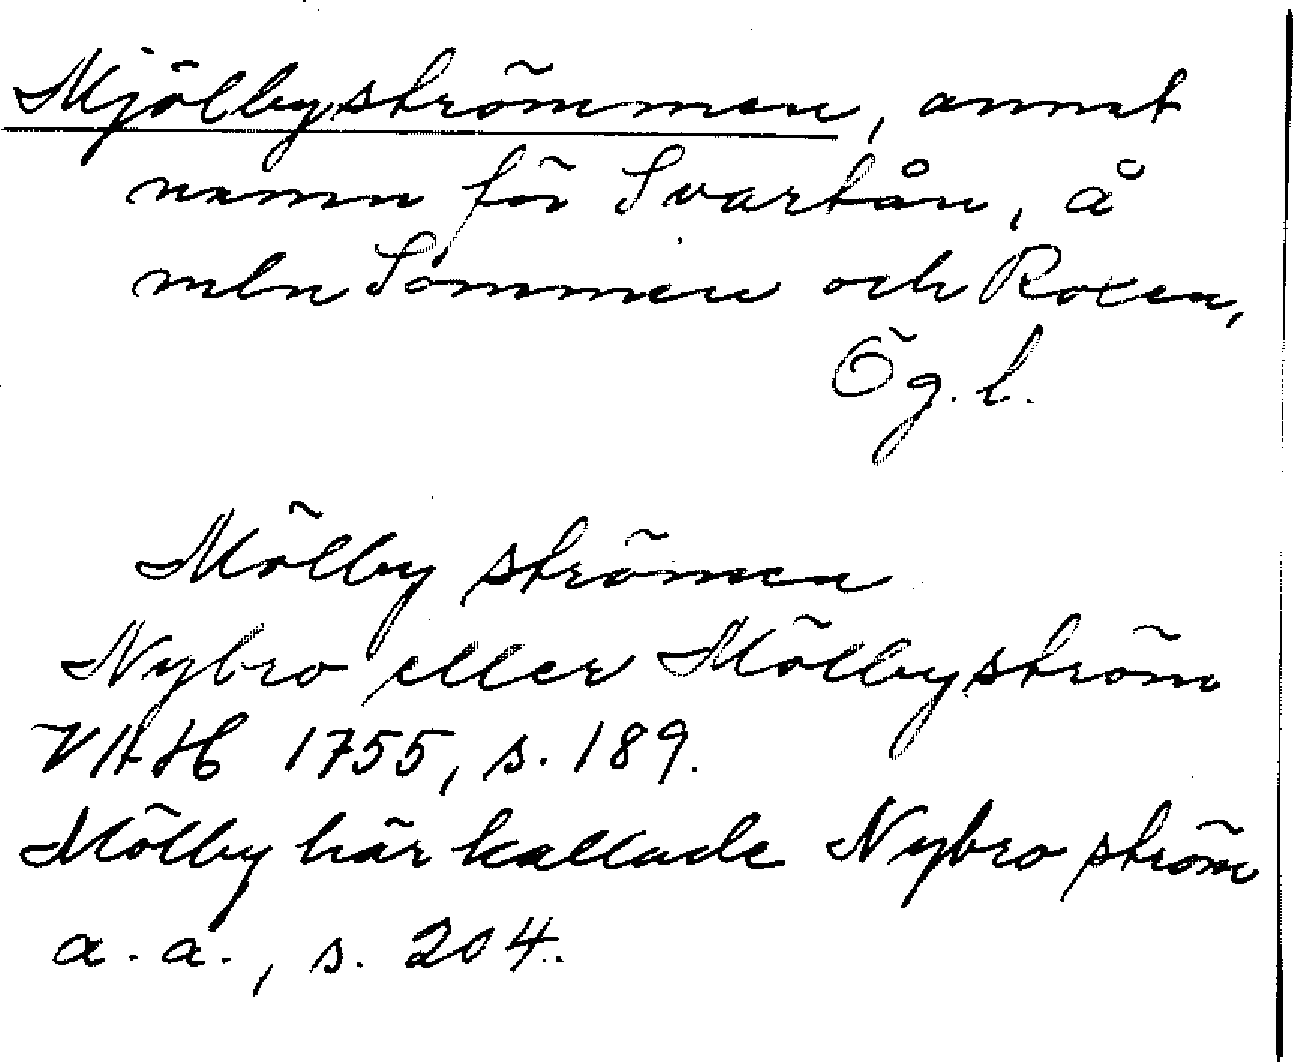 Mjölbyströmmen, annat
namn för Svartån, å
mln Sommen och Roxen,
Ög. l.
Mölby strömen
Nybro eller Mölbyström
VAH 1755, s. 189.
Mölby här kallade Nybro ström
a. a., s. 204.